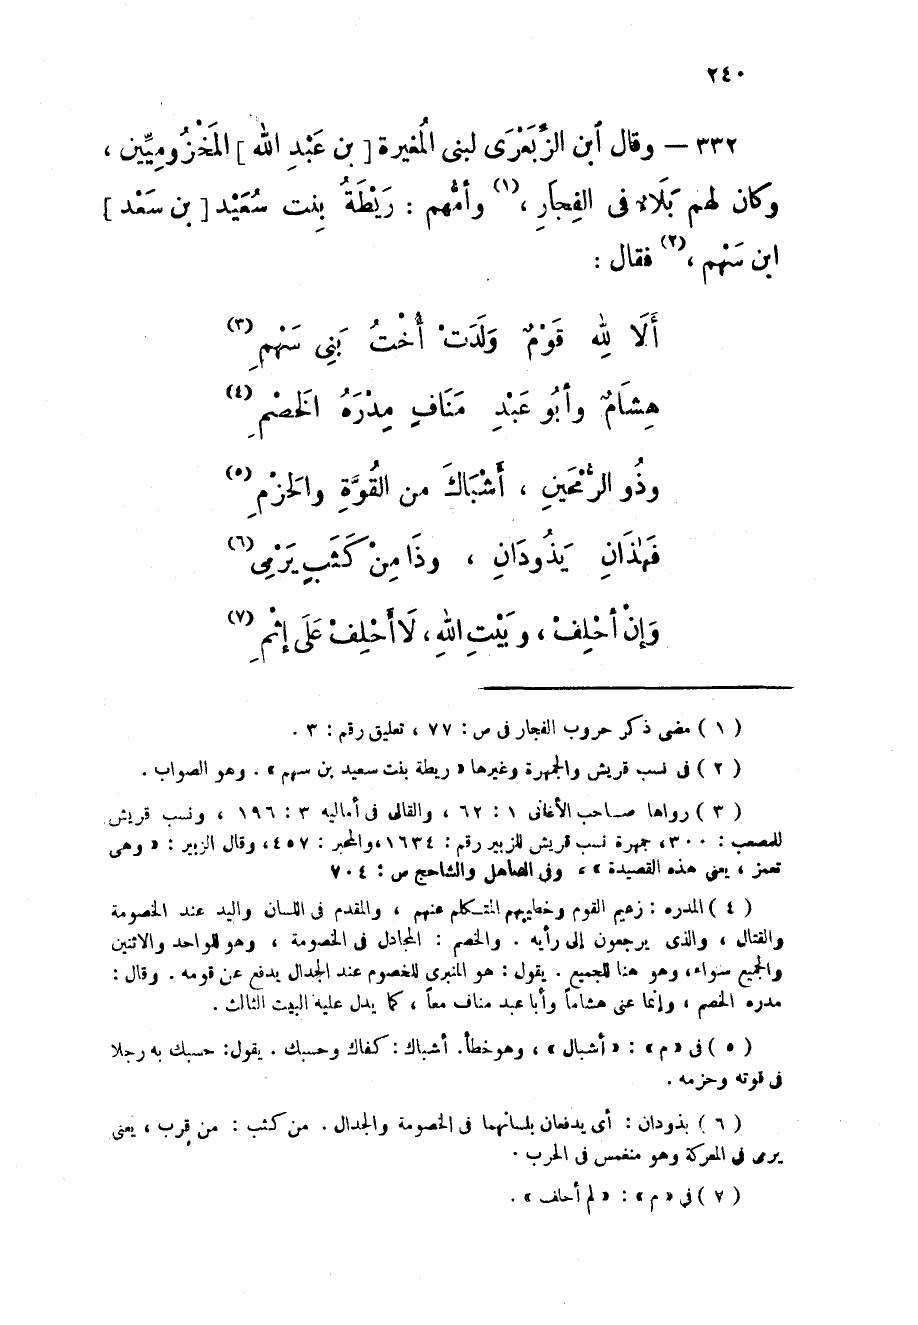 ٢٤٠
٣٣٢ — وقال ٱبن الزِّبَعْرَى لبنى المُغيرة [ بن عَبْدِ الله ] المَخْزُومِيِّين ،
وكان لهم بَلَاءٌ فى الفِجَارِ ،(١) وأمُّهم : رَيْطَةُ بِنت سُعَيْد [ بن سَعْد ]
ابن سَهْم ،(٢) فقال :
أَلَا لِلّٰهِ قَوْمٌ وَلَدَتْ أُخْتُ بَنِى سَهْمِ (٣)
هِشَامٌ وأبُو عَبْدِ مَنَافٍ مِدْرَهُ الخَصْمِ (٤)
وذُو الرُّمْحَينِ ، أَشْبَاكَ من القُوَّةِ والحَزْمِ (٥)
فَهٰذَانِ يَذُودَانِ ، وذَا مِنْ كَثَبٍ يَرْمِى (٦)
وَإِنْ أحْلِفْ ، وبَيْتِ اللهِ ، لَا أَحْلِفْ عَلَى إثْمِ (٧)
( ١ ) مضى ذكر حروب الفجار فى ص : ٧٧ ، تعليق رقم : ٣ .
( ٢ ) فى نسب قريش والجمهرة وغيرها « ريطة بنت سعيد بن سهم » . وهو الصواب .
( ٣ ) رواها صاحب الأغانى ١ : ٦٢ ، والقالى فى أماليه ٣ : ١٩٦ ، ونسب قريش
للمصعب : ٣٠٠، جمهرة نسب قريش للزبير رقم : ١٦٣٤ ،والمحبر : ٤٥٧، وقال الزبير : « وهى
تعمز ، يعنى هذه القصيدة » ، وفى الصاهل والشاحج ص : ٧٠٤
( ٤ ) المدره : زعيم القوم وخطيبهم المتكلم عنهم ، والمقدم فى اللسان واليد عند الخصومة
والقتال ، والذى يرجعون إلى رأيه . والخصم : المجادل فى الخصومة ، وهو للواحد والاثنين
والجميع سواء، وهو هنا للجميع . يقول : هو المنبرى للخصوم عند الجدال يدفع عن قومه . وقال :
مدره الخصم ، وإنما عنى هشاماً وأبا عبد مناف معاً ، كما يدل عليه البيت الثالث .
( ٥ ) فى « م » : « أشبال » ، وهو خطأ. أشباك : كفاك وحسبك . يقول: حسبك به رجلا
فى قوته وحزمه .
( ٦ ) يذودان : أى يدفعان بلسانهما فى الخصومة والجدال . من كثب : من قرب ، يعنى
يرمى فى المعركة وهو منغمس فى الحرب .
( ٧ ) فى « م » : « لم أحلف » .